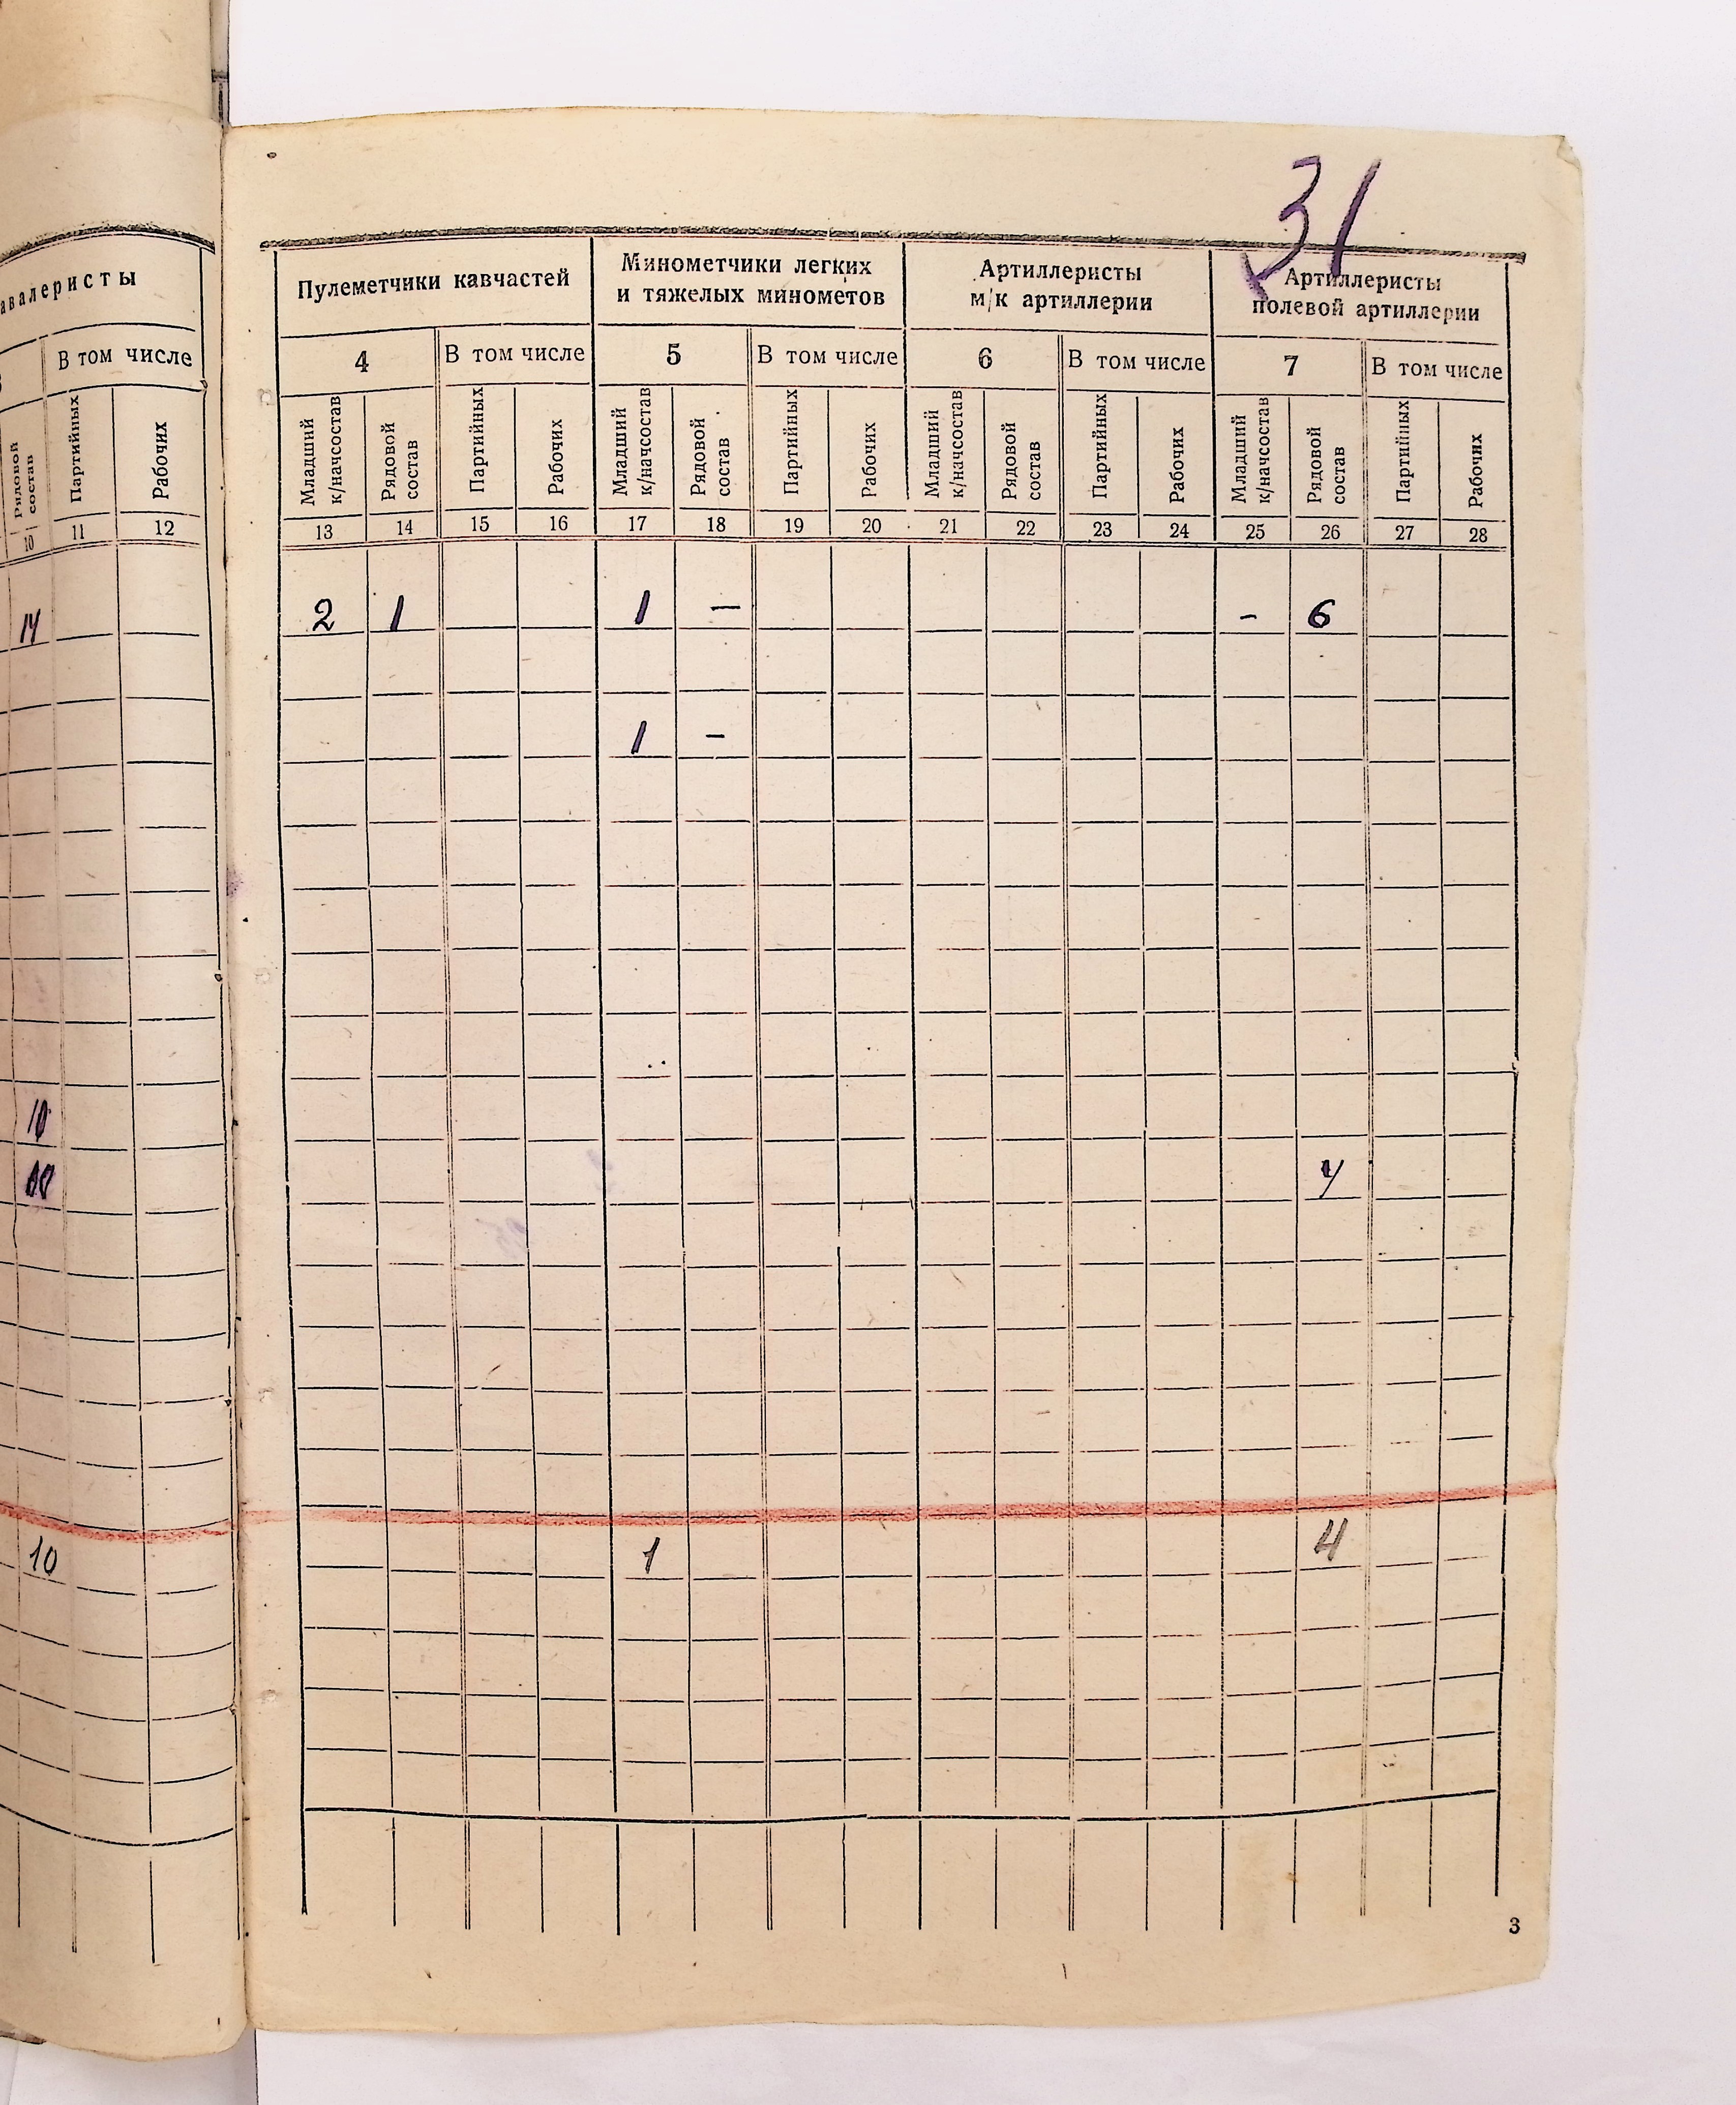 31
авалеристы
В том числе
Рядовой состав
Партийных
Рабочих
10 11 12
14
10
10
Пулеметчики кавчастей
Минометчики легких
и тяжелых минометов
Артиллеристы
м/к артиллерии
Артиллеристы
полевой артиллерии
4 В том числе 5 В том числе 6 В том числе 7 В том числе
Младший к/начсостав Рядовой состав Партийных Рабочих Младший к/начсостав Рядовой состав Партийных Рабочих Младший к/начсостав Рядовой состав Партийных Рабочих Младший к/начсостав Рядовой состав Партийных Рабочих
13 14 15 16 17 18 19 20 21 22 23 24 25 26 27 28
2 1 1 – – 6
1 –
4
1 4
3